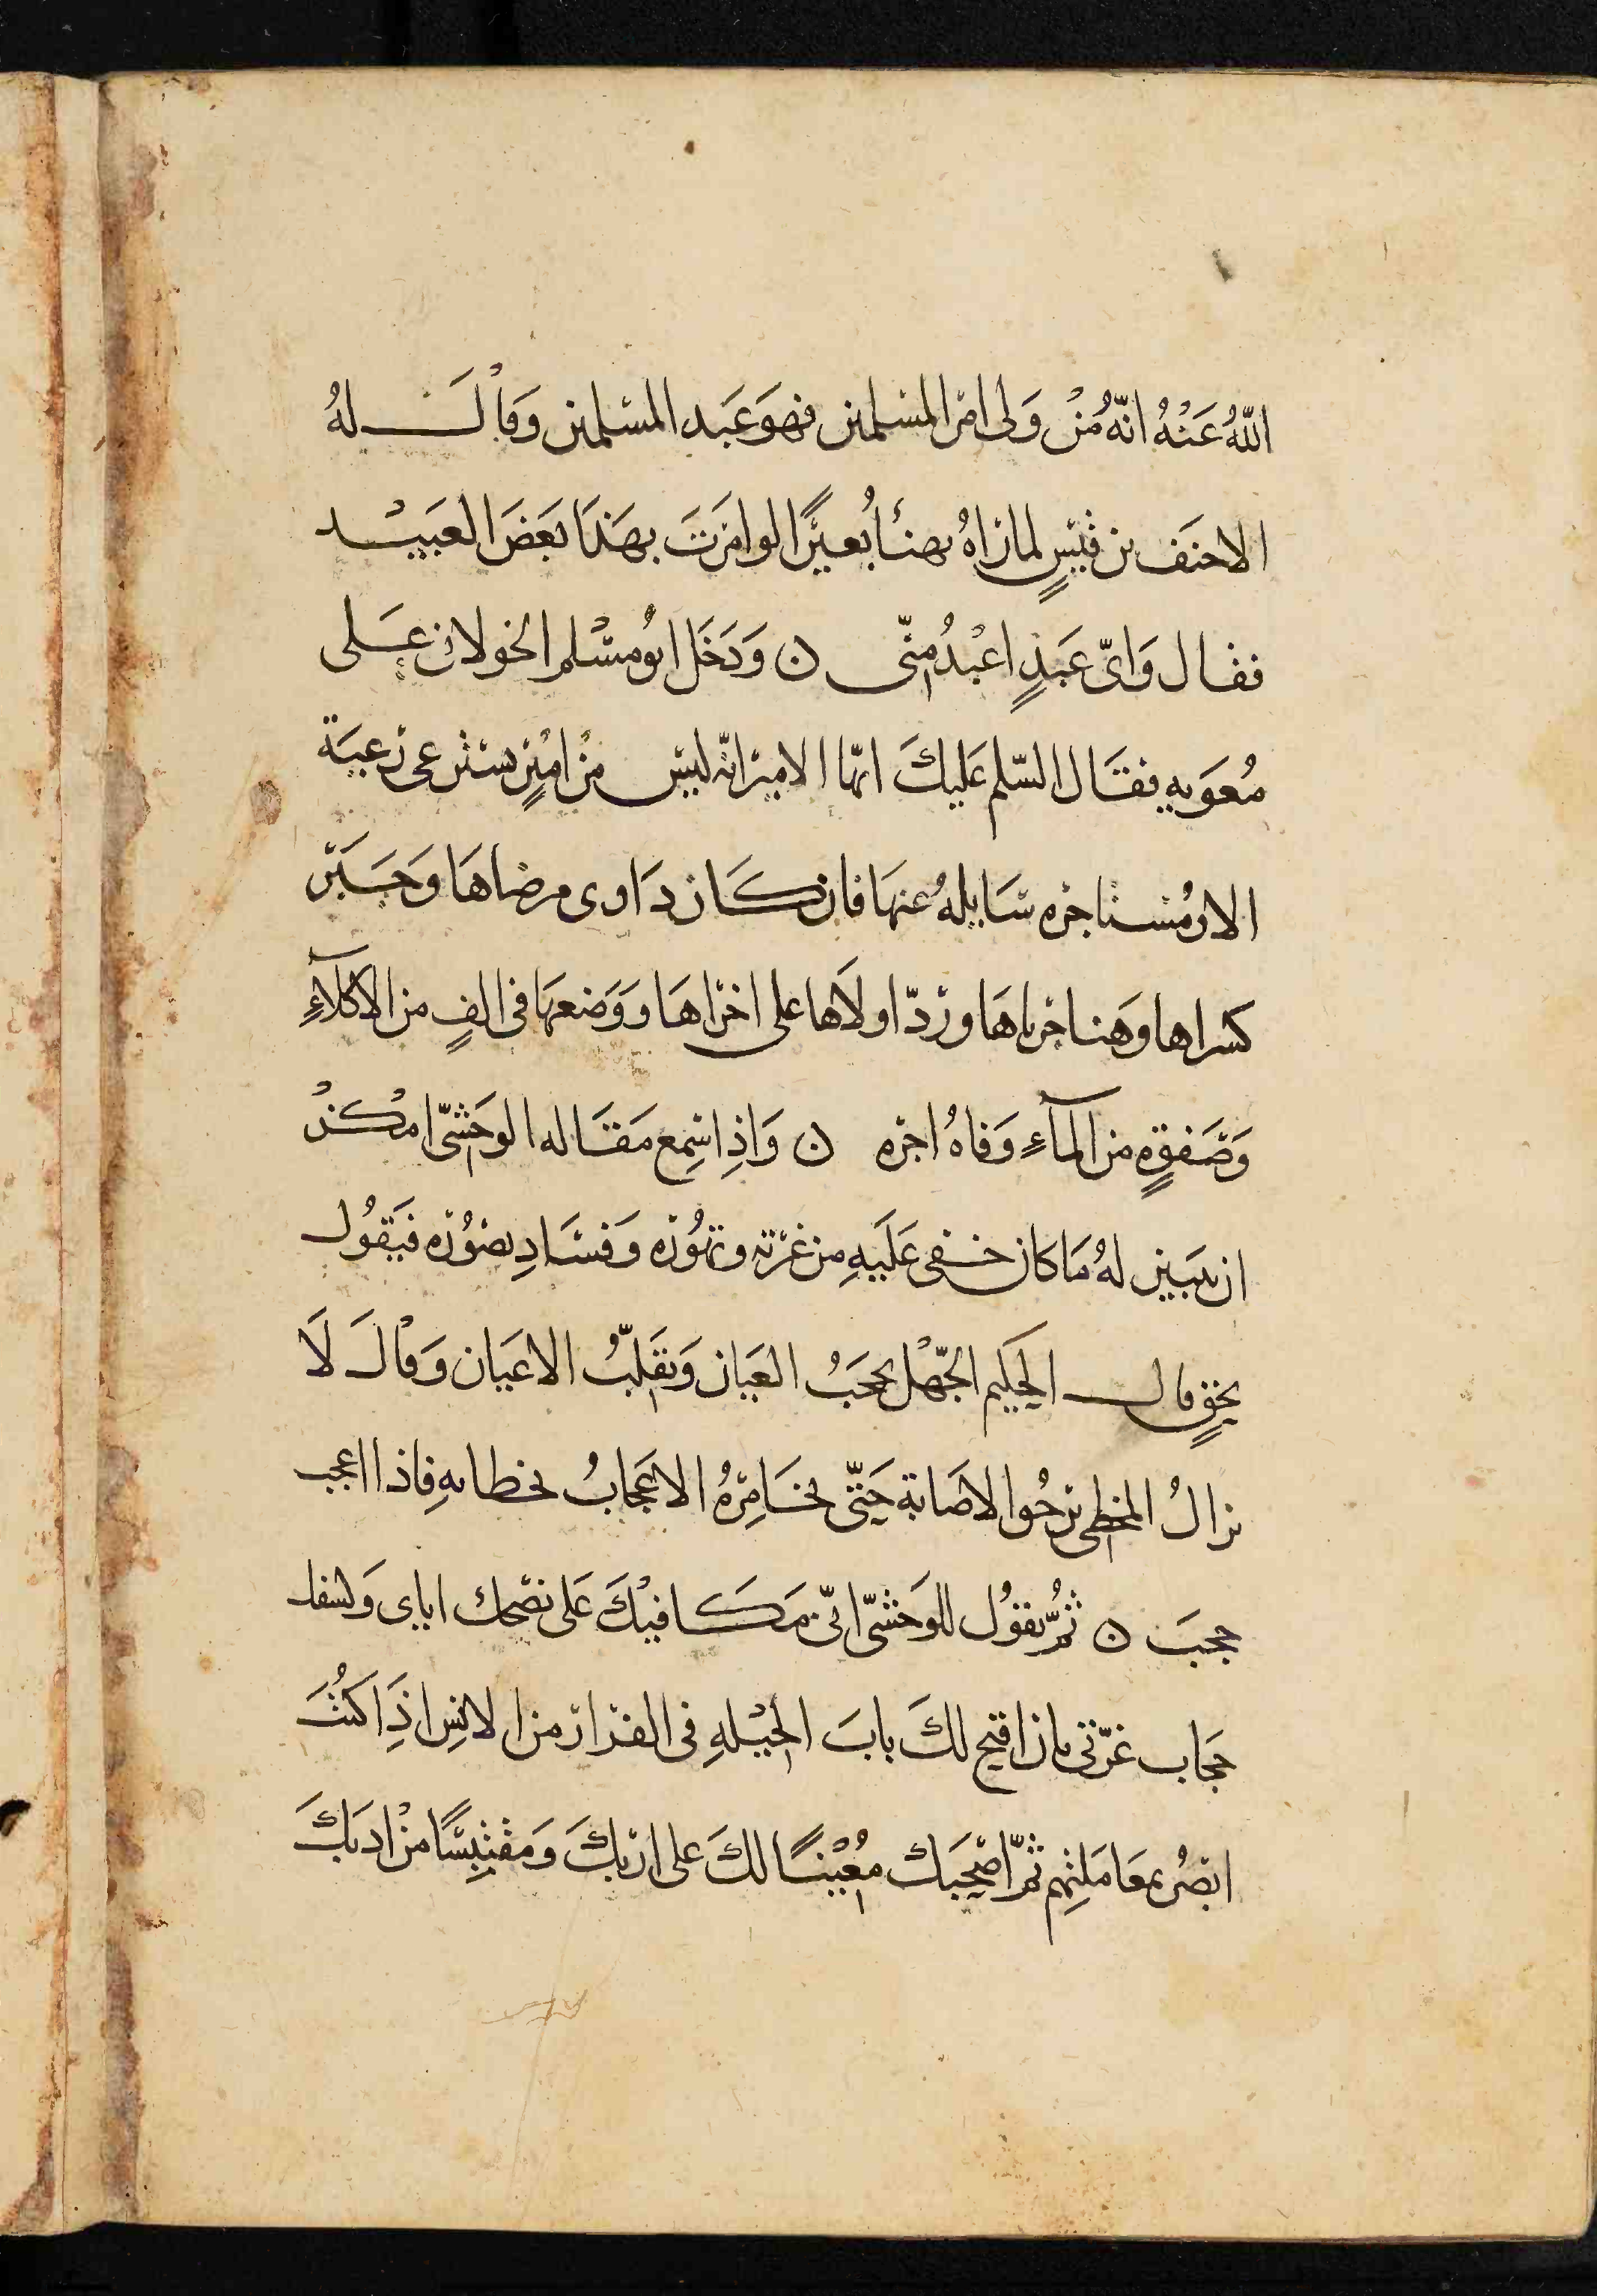 اللّٰهُ عَنْهُ انّه مُنْ وَلى امر المسلمين فهوَ عَبد المسلمين وَقالَ لهُ
الاحنَف بن قيسٍ لما رَاهُ يهنأ بُعيرًا لو امَرتَ بهَذا بَعضَ العَبيد
فقال وَايّ عَبَدٍ اعْبدُ منّى ن وَدَخَل ابُو مسْلم الخولانى عَلى
مُعَويه فقَال السّلم عَليكَ ايّها الامير انّه ليس من اميرٍ يسترعى رَعيَة
الا ومُستاجره سَايلهُ عنهَا فان كَان دَاوى مرضاهَا وَجَبَر
كسراها وَهنا جرباهَا وردّ اولَاها على اخرَاهَا ووَضعهَا فى الفٍ من الاكلآءِ
وَصَفقةٍ من المآءِ وَفاهُ اجره ن وَاذِا سَمِع مَقَاله الوحَشىّ امْكنْ
ان يتبين لهُ مَا كان خفى عَلَيهِ من غرته وتهوُّره وَفسَادِ تصوُّره فيَقوُل
بحَقٍ قال الحكيم الجَهْل يحجَبُ العيَان وَيقَلِّبُ الاعيَان وَقالَ لَا
يزالُ المخطى يرجُوا الاصَابة حَتّى يخَامِرهُ الاعجَابُ بخطايهِ فاذا اعجب
حجبَ ن ثمُّ يقوُل للوَحَشىّ انّى مَكَافيْكَ عَلى نصْحك اياى وَكشفك
حجَاب غرّتى بان افتح لكَ بابَ الحيْلهِ فى الفرَار من الانسِ اذَا كنتَ
ابصَرُ بمعَامَلتِهم ثمّ اصْحبَك مُعيْنًا لكَ على ارَبكَ وَمقتبِسًا منْ ادبكَ